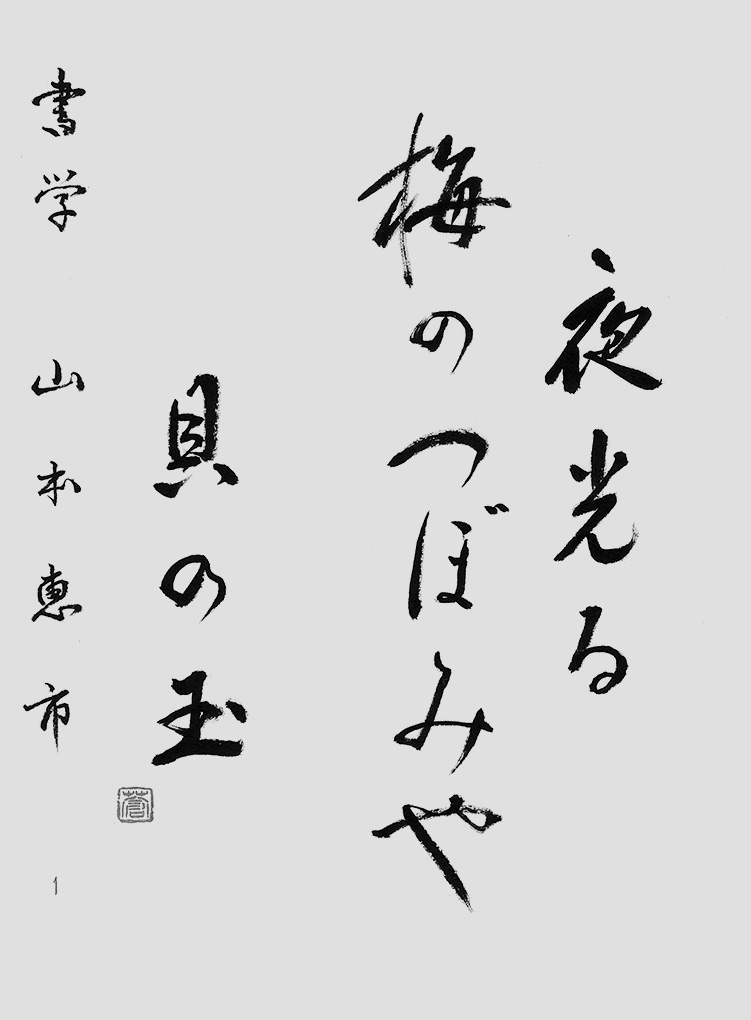 夜光る
梅のつぼみや
貝の玉
書学 山本恵市
蒼
1